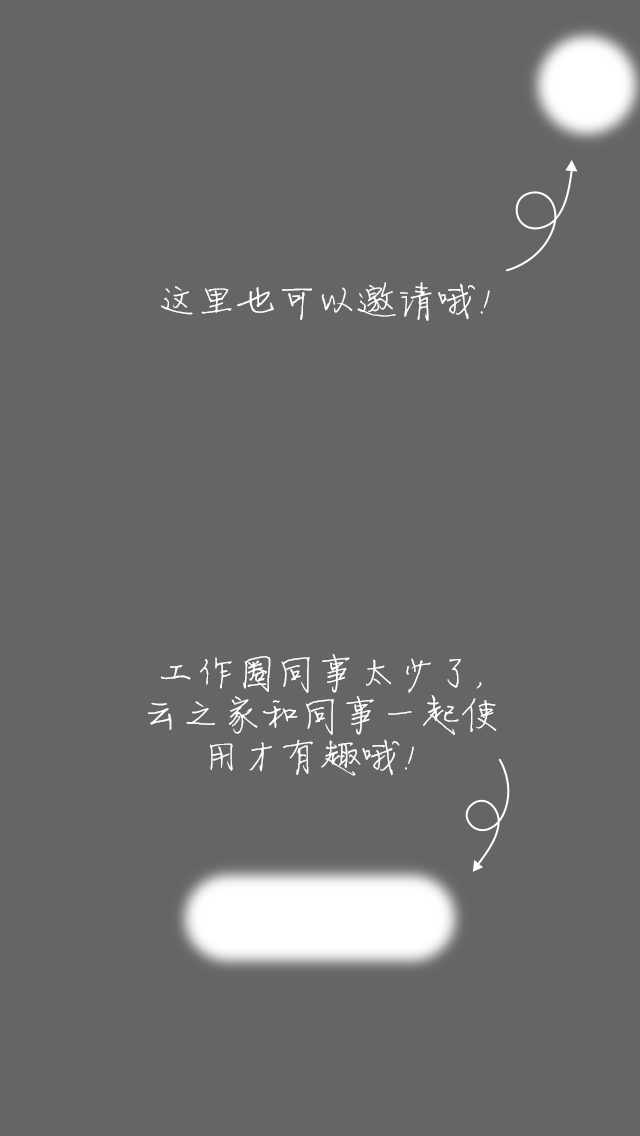 这里也可以邀请哦!
工作圈同事太少了,
云之家和同事一起使
用才有趣哦!